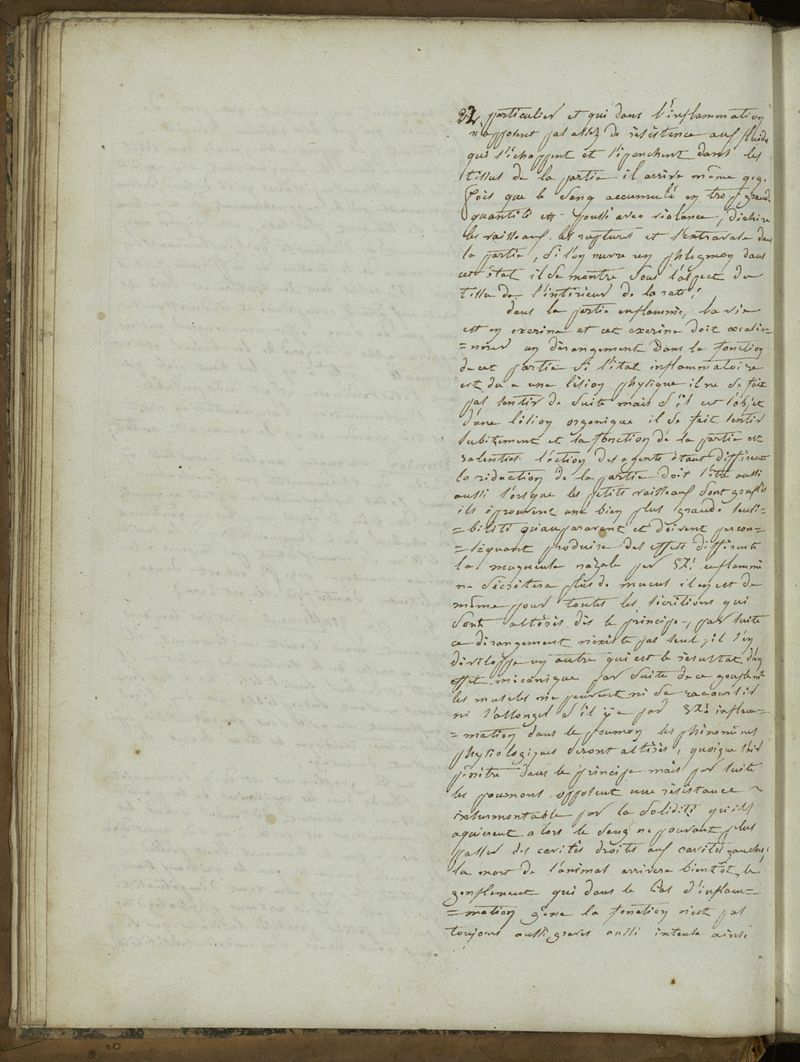 22, particulier et qui dans l'inflammation
n'apposent pas assez de résistence aux fluides
qui s'échappent et s'épanchent dans les
tissus de la partie il arrive même qq.
fois que le sang accumulé en trop grande
quantité et poussé avec violance, déchire
les vaisseaux les ruptures et s'extravase dans
la partie, si l'on ouvre un phlegmon dans
cet état il se montre sous l'aspect du
tissu de l'intérieur de la rate.
dans la partie enflammée, la vie
est en exercice et cet exercice doit occasio=
=nner un dérangement dans la fonction
de cet partie si l'état inflammatoire
est du a une lésion physique il ne se fait
pas sentir de suite mais s'il est l'objet
d'une lésion organique il se fait sentir
subitement et la fonction de la partie est
ralentiet l'action des agents étant différente
la réduction de la partie doit l'être aussi
aussi lorsque les petits vaisseaux sont gonflés
ils éprouvent une bien plus grande sensi=
=bilité qu'auparavant et doivent percon=
=séquant produire des effets différents
la muqueuse nazale par Ex: enflammé
ne sécrétera plus de mucus il en est de
même pour toutes les sécrétions qui
sont altérés dès le principe, par suite
ce dérangement n'existe pas seul, il s'en
développe un autre qui est le résultat d'un
effet mécanique par suite de ce gonflement
les muscles ne peuvent ni se raccourcir
ni s'allonger s'il y a par Ex: inflam=
=mation dans le poumon les phénomènes
physiologiques seront altérés, quoique l'air
pénètre dans le principe mais par suite
les poumons opposent une résistance
insurmontable par la solidité qu'ils
aquierent alors le sang ne pouvant plus
passer des cavités droites aux cavités gauches,
la mort de l'animal arrivera bientôt, le
gonflement qui dans le cas d'inflam=
=mation gène la fonction n'est pas
toujours aussi graves aussi intense ainsi